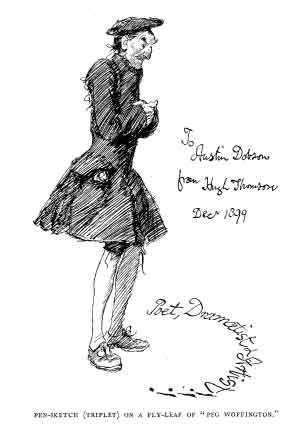 To
Austin Dobson
from Hugh Thomson
Decr 1899
Poet, Dramatist & Artist!!!!
PEN-SKETCH (TRIPLET) ON A FLY-LEAF OF "PEG WOFFINGTON."